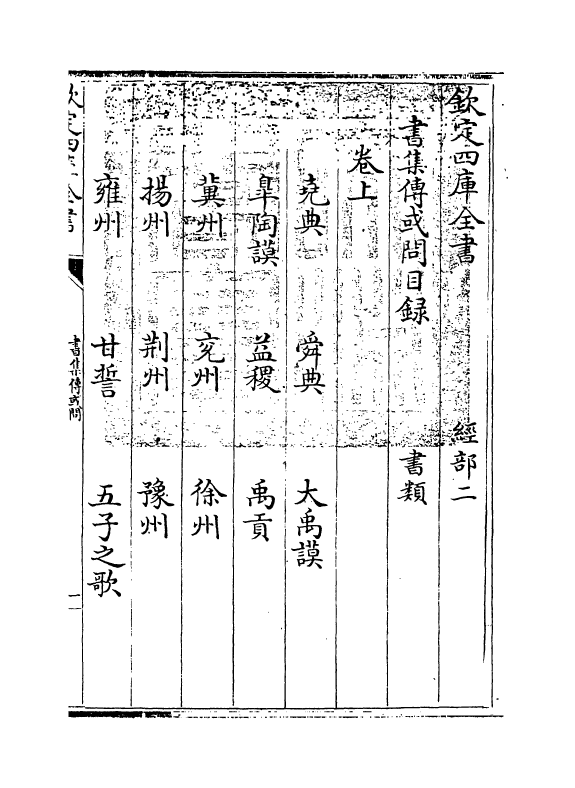 欽定四庫全書 經部二
書集傳或問目録 書類
卷上
堯典 舜典 大禹謨
臯陶謨 益稷 禹貢
冀州 兖州 徐州
揚州 荆州 豫州
雍州 甘誓 五子之歌
欽定四庫全書 書集傳或問 一